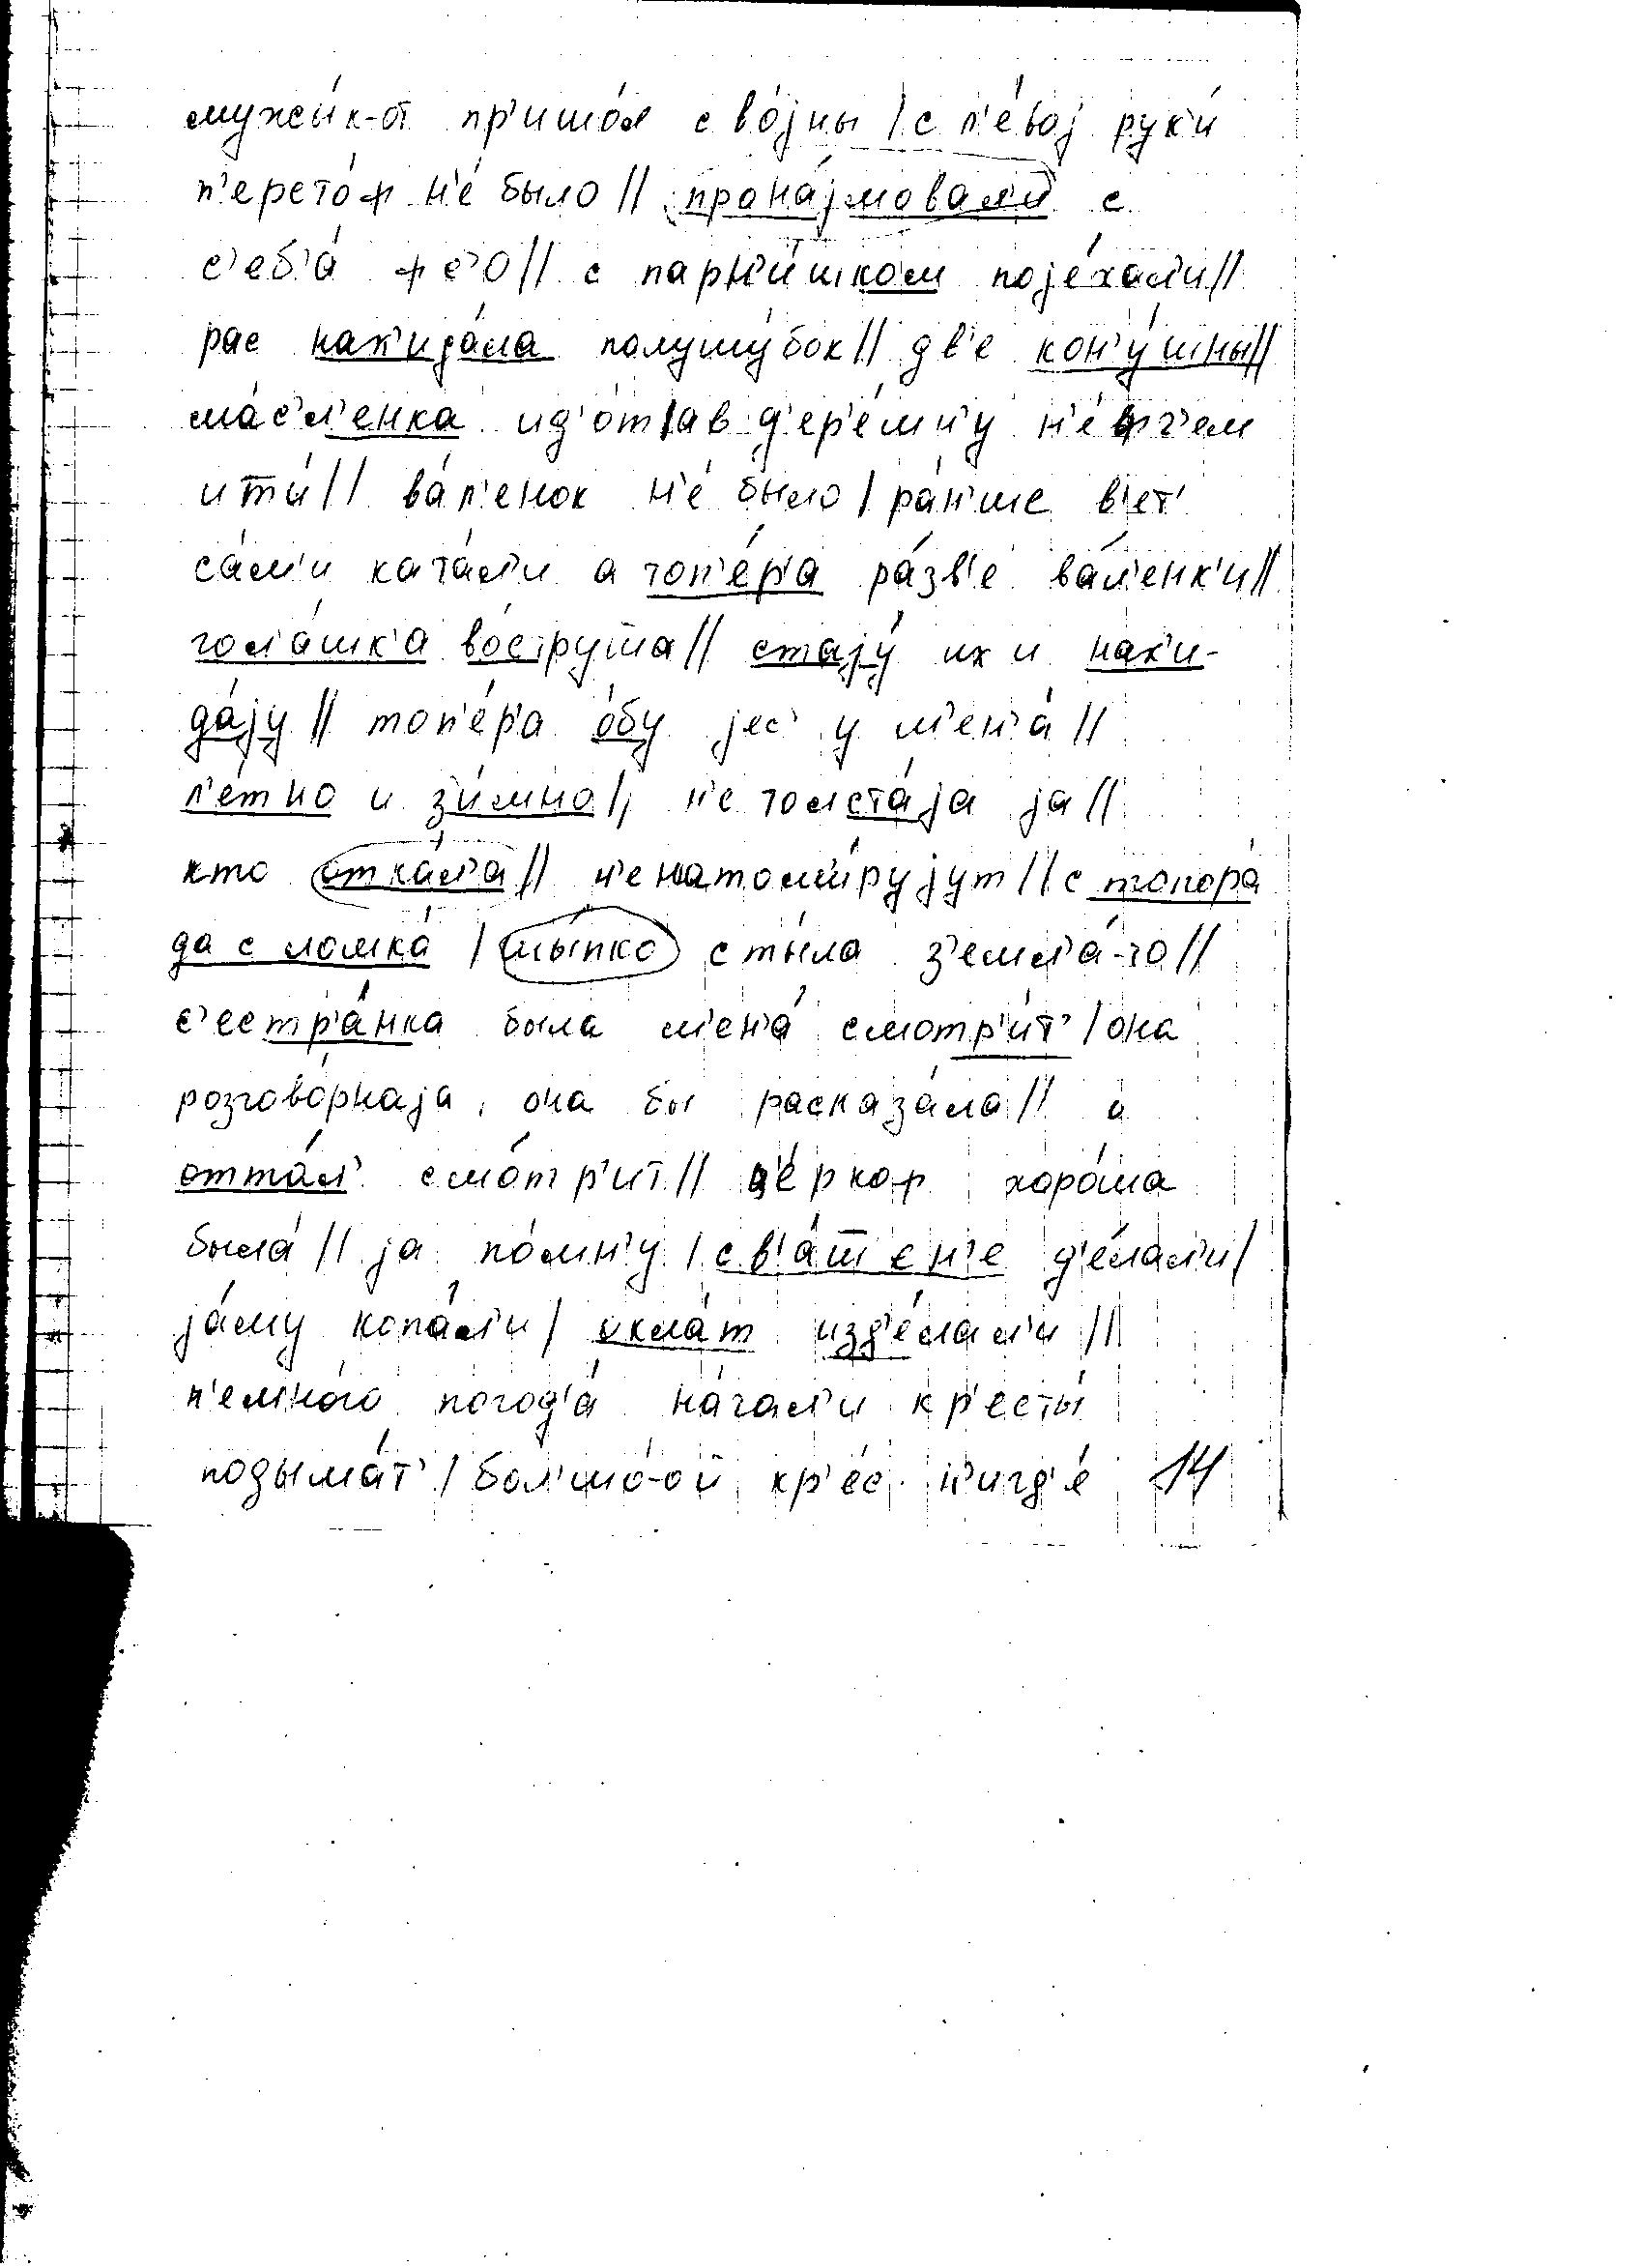 мужы́к-от пр'ишо́л с во́јны / с л'е́вој рук'и́
п'ерсто́ф н'е́ было // прона́јмовал'и с
с'еб'а́ фс'о // с парн'и́шком појéхал'и //
рас нак'ида́ла полушу́бок // дв'е кон'у́шны //
ма́с'л'енка ид'о́т / а в д'ер'е́мн'у н'е́ фч'ем
итти́ // ва́л'енок н'е́ было / ра́н'ше в'ет'
са́м'и ката́л'и а топ'е́р'а ра́зв'е ва́л'енк'и //
гола́шк'а во́струша // стају́ их и нак'и-
да́ју // топ'е́р'а о́бу јес' у м'ен'а́ //
л'е́тно и з'и́мно // н'е толста́ја ја //
кто отка́л'а // н'е натом'и́рујут // с топора́
да с ломка́ / шы́пко сты́ла з'емл'а́-то //
с'естр'а́нка была м'ен'а́ смотр'и́т' / она
розгово́рнаја, она бы расказа́ла // а
отта́л' смо́тр'ит // це́ркоф хоро́ша
была́ // ја по́мн'у / св'а́шшен'е д'е́лал'и /
ја́му копа́л'и / окла́т изд'е́лал'и //
н'емно́го погод'а́ на́чал'и кр'есты́
подыма́т' / бол'шо́-ой кр'ес н'игд'е́ 14